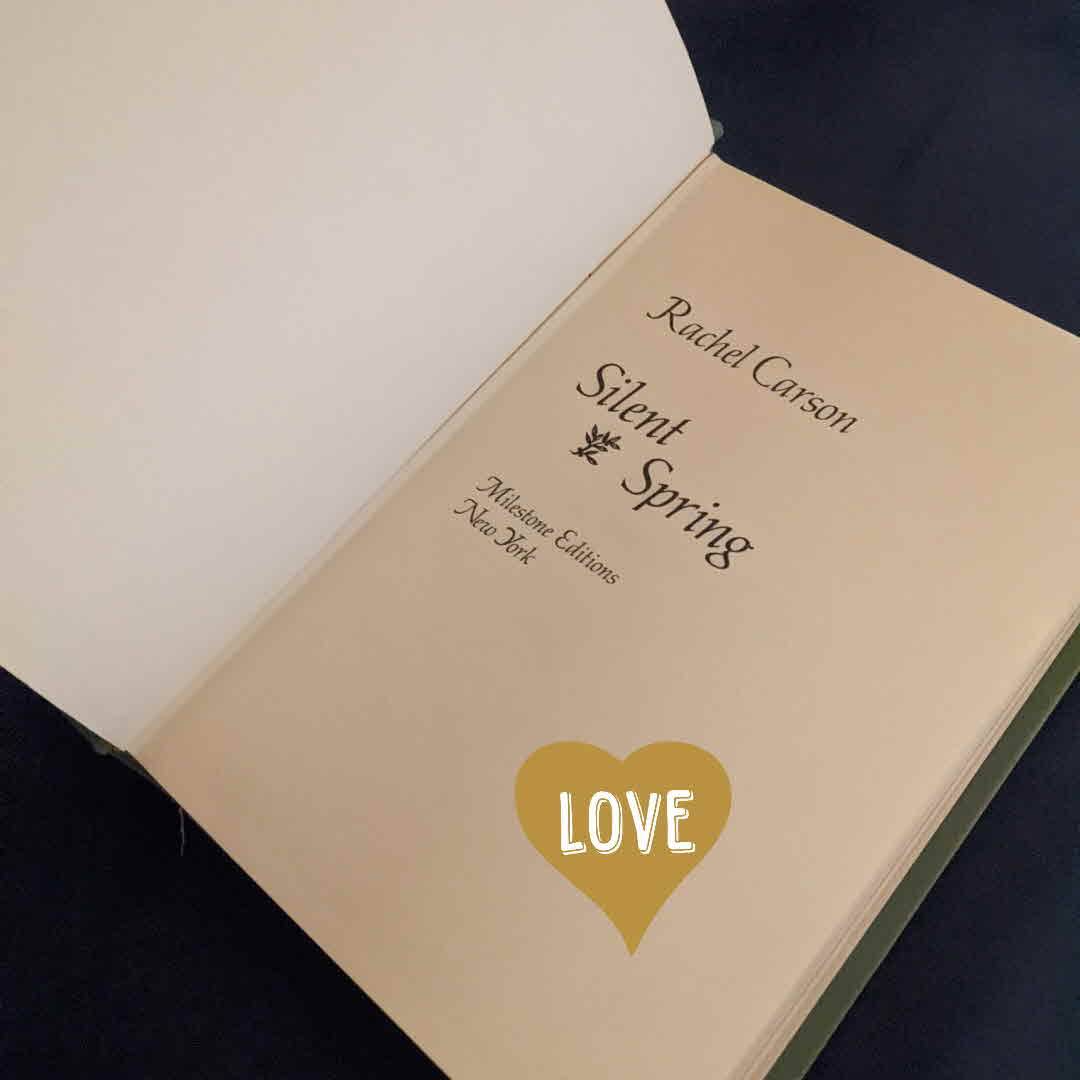 Rachel Carson
Silent
Spring
Milestone Editions
New York
LOVE